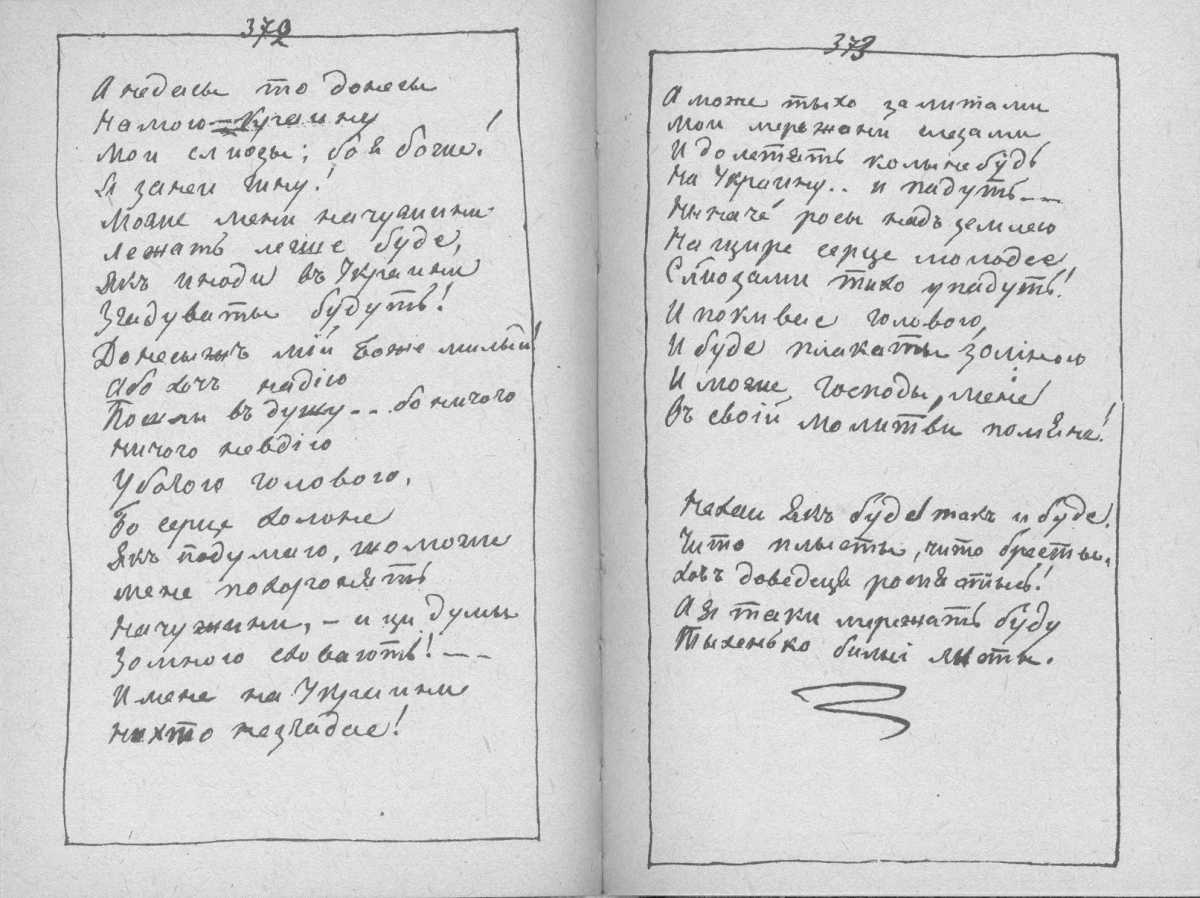 372
А недасы то донесы
На мою Украину
Мои слиозы; бо я боже!
Я занеи гину!
Може мени начужини
Лежать легше буде,
Якъ иноди въ Украини
Згадуваты будуть!
Донесыжъ мій Боже милый!
Або хочъ надію
Пошлы въ душу -- бо ничого
Ничого невдію
Убогою головою,
Бо серце холоне
Якъ подумаю, що може
Мене похоронять
Начужини, - и ци думы
Зомною сховають! ---
И мене на Украини
Нихто незгадае!
373
А може тыхо за литами
Мои мережани слезами
И долетять колынебудь
На Украину.. и падуть---
Ныначе росы надъ землею
На щире серце молодее
Слиозами тихо упадуть!
И покивае головою,
И буде плакаты зоміною
И може, господы, мене
Въ своій молитви помяне!
Нехаи якъ буде такъ и буде.
Чито плысты, чито брысты,
Хочъ доведеця роспястысь!
А я таки мережать буду
Тыхенько билыі лысты.